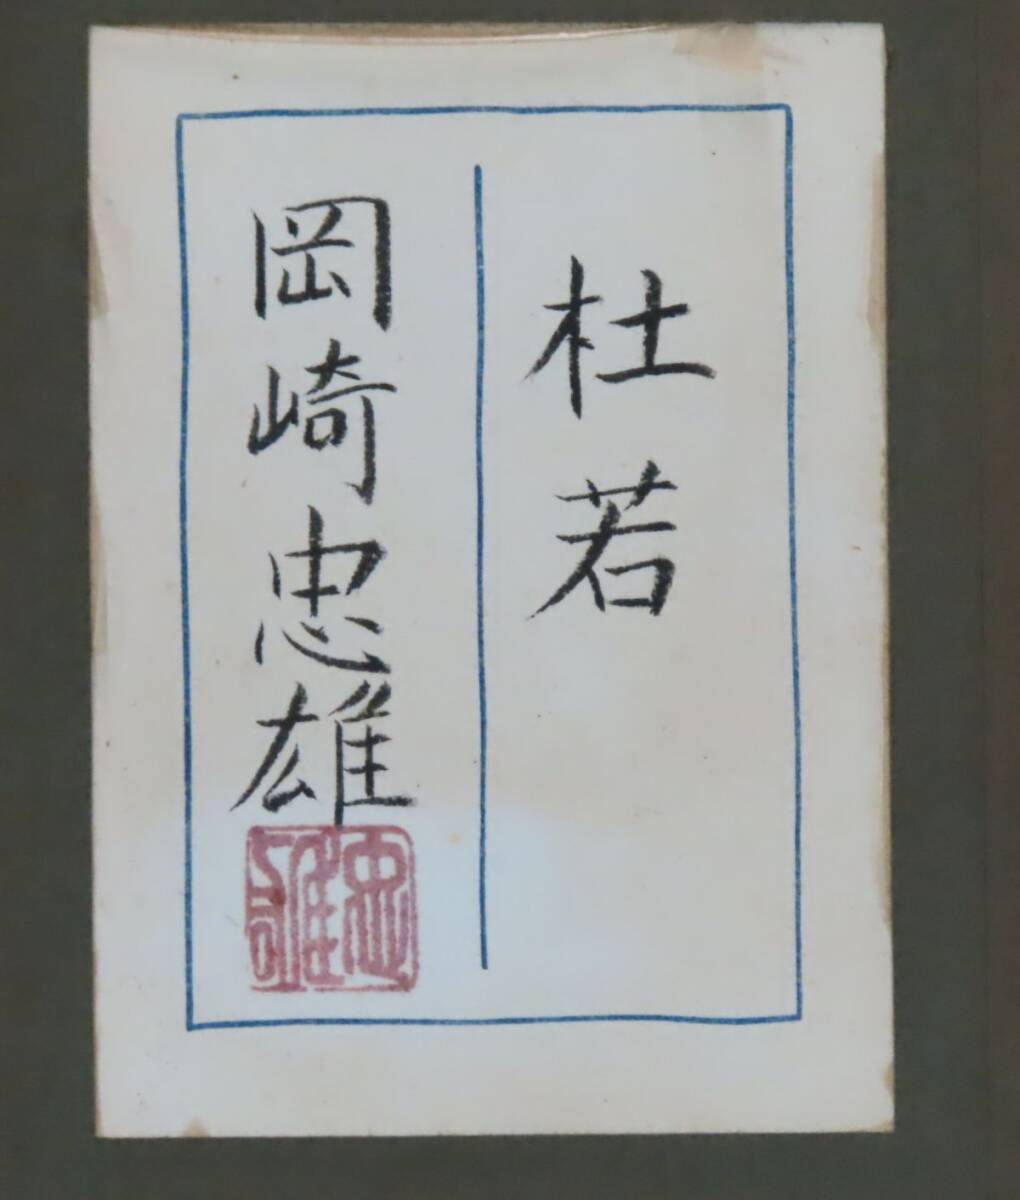 杜若
岡崎忠雄
忠雄